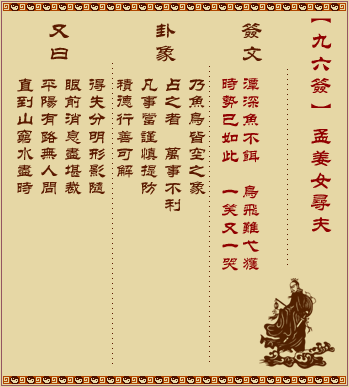 【九六簽】 孟姜女尋夫
簽文
潭深魚不餌 鳥飛難弋獲
時勢已如此 一笑又一哭
卦象
乃魚鳥皆空之象
占之者 萬事不利
凡事當謹慎提防
積德行善可解
又曰
得失分明形影隨
眼前消息盡堪裁
平陽有路無人問
直到山窮水盡時